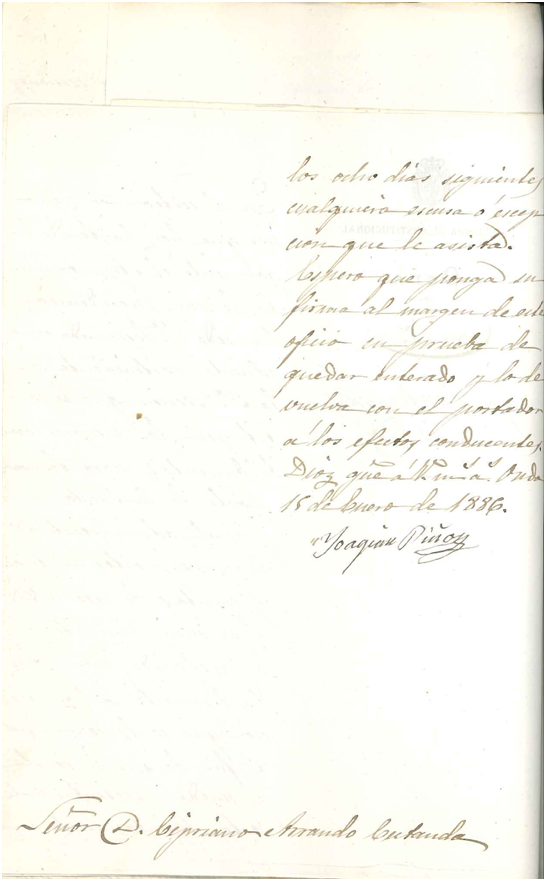 los ocho dias siguientes
cualquiera escusa ó escep
cion que le asista.
Espero que ponga su
firma al margen de este
oficio en prueba de
quedar enterado y lo de
vuelva con el portador
á los efectos conducentes.
Dios gue á V. ms. as. Onda
15 de Enero de 1886.
Joaquin Piñon
Señor D. Cipriano Arrando Cutanda